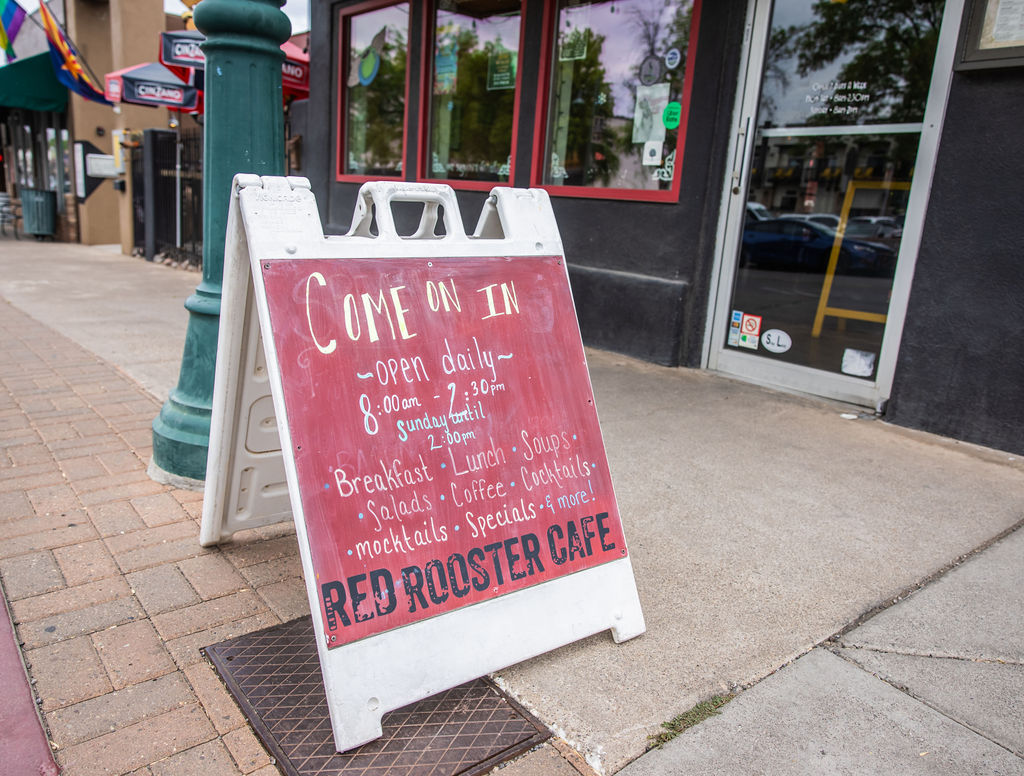 CINZANO
CINZANO
COME ON IN
~open daily~
8:00am - 2:30pm
Sunday until
2:00pm
Breakfast • Lunch • Soups •
• Salads • Coffee • Cocktails •
• mocktails • Specials • & more!
RED ROOSTER CAFE
Open 7 Days a Week